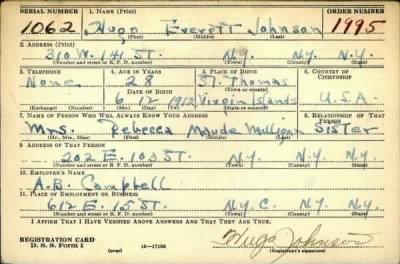 SERIAL NUMBER 1. NAME (Print) ORDER NUMBER
1062 Hugo Everett Johnson 1995
(First) (Middle) (Last)
2. ADDRESS (Print)
310 W. 141 ST. N.Y. N.Y. N.Y.
(Number and street or R. F. D. number) (Town) (County) (State)
3. TELEPHONE 4. AGE IN YEARS 5. PLACE OF BIRTH 6. COUNTRY OF CITIZENSHIP
None 28 St. Thomas
DATE OF BIRTH
6 12 1912 Virgin Islands U.S.A
(Exchange) (Number) (Mo.) (Day) (Yr.) (State or country)
7. NAME OF PERSON WHO WILL ALWAYS KNOW YOUR ADDRESS 8. RELATIONSHIP OF THAT PERSON
Mrs. Rebecca Maude Mulligan Sister
(Mr., Mrs., Miss) (First) (Middle) (Last)
9. ADDRESS OF THAT PERSON
202 E. 103 ST. N.Y. N.Y. N.Y.
(Number and street or R. F. D. number) (Town) (County) (State)
10. EMPLOYER'S NAME
A.B. Campbell
11. PLACE OF EMPLOYMENT OR BUSINESS
612 E. 15 ST. N.Y.C. N.Y. N.Y.
(Number and street or R. F. D. number) (Town) (County) (State)
I AFFIRM THAT I HAVE VERIFIED ABOVE ANSWERS AND THAT THEY ARE TRUE.
REGISTRATION CARD
D. S. S. FORM 1 (over) 16-17105 Hugo Johnson
(Registrant's signature)